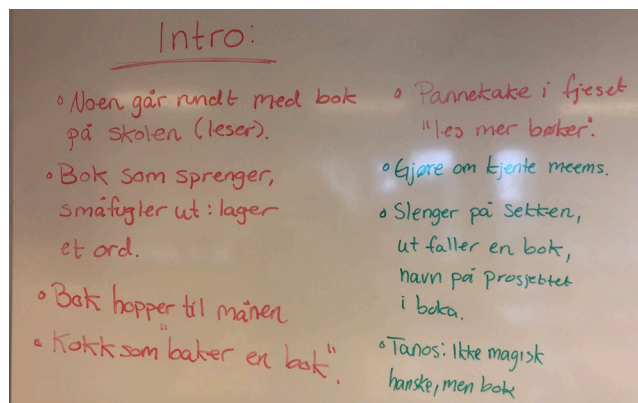 Intro:
• Noen går rundt med bok
på skolen (leser).
• Bok som sprenger,
småfugler ut: lager
et ord.
• Bok hopper til månen
• Kokk som "baker en bok".
• Pannekake i fjeset
"les mer bøker".
• Gjøre om kjente meems.
• Slenger på sekken,
ut faller en bok,
navn på prosjektet
i boka.
• Tanos: Ikke magisk
hanske, men bok